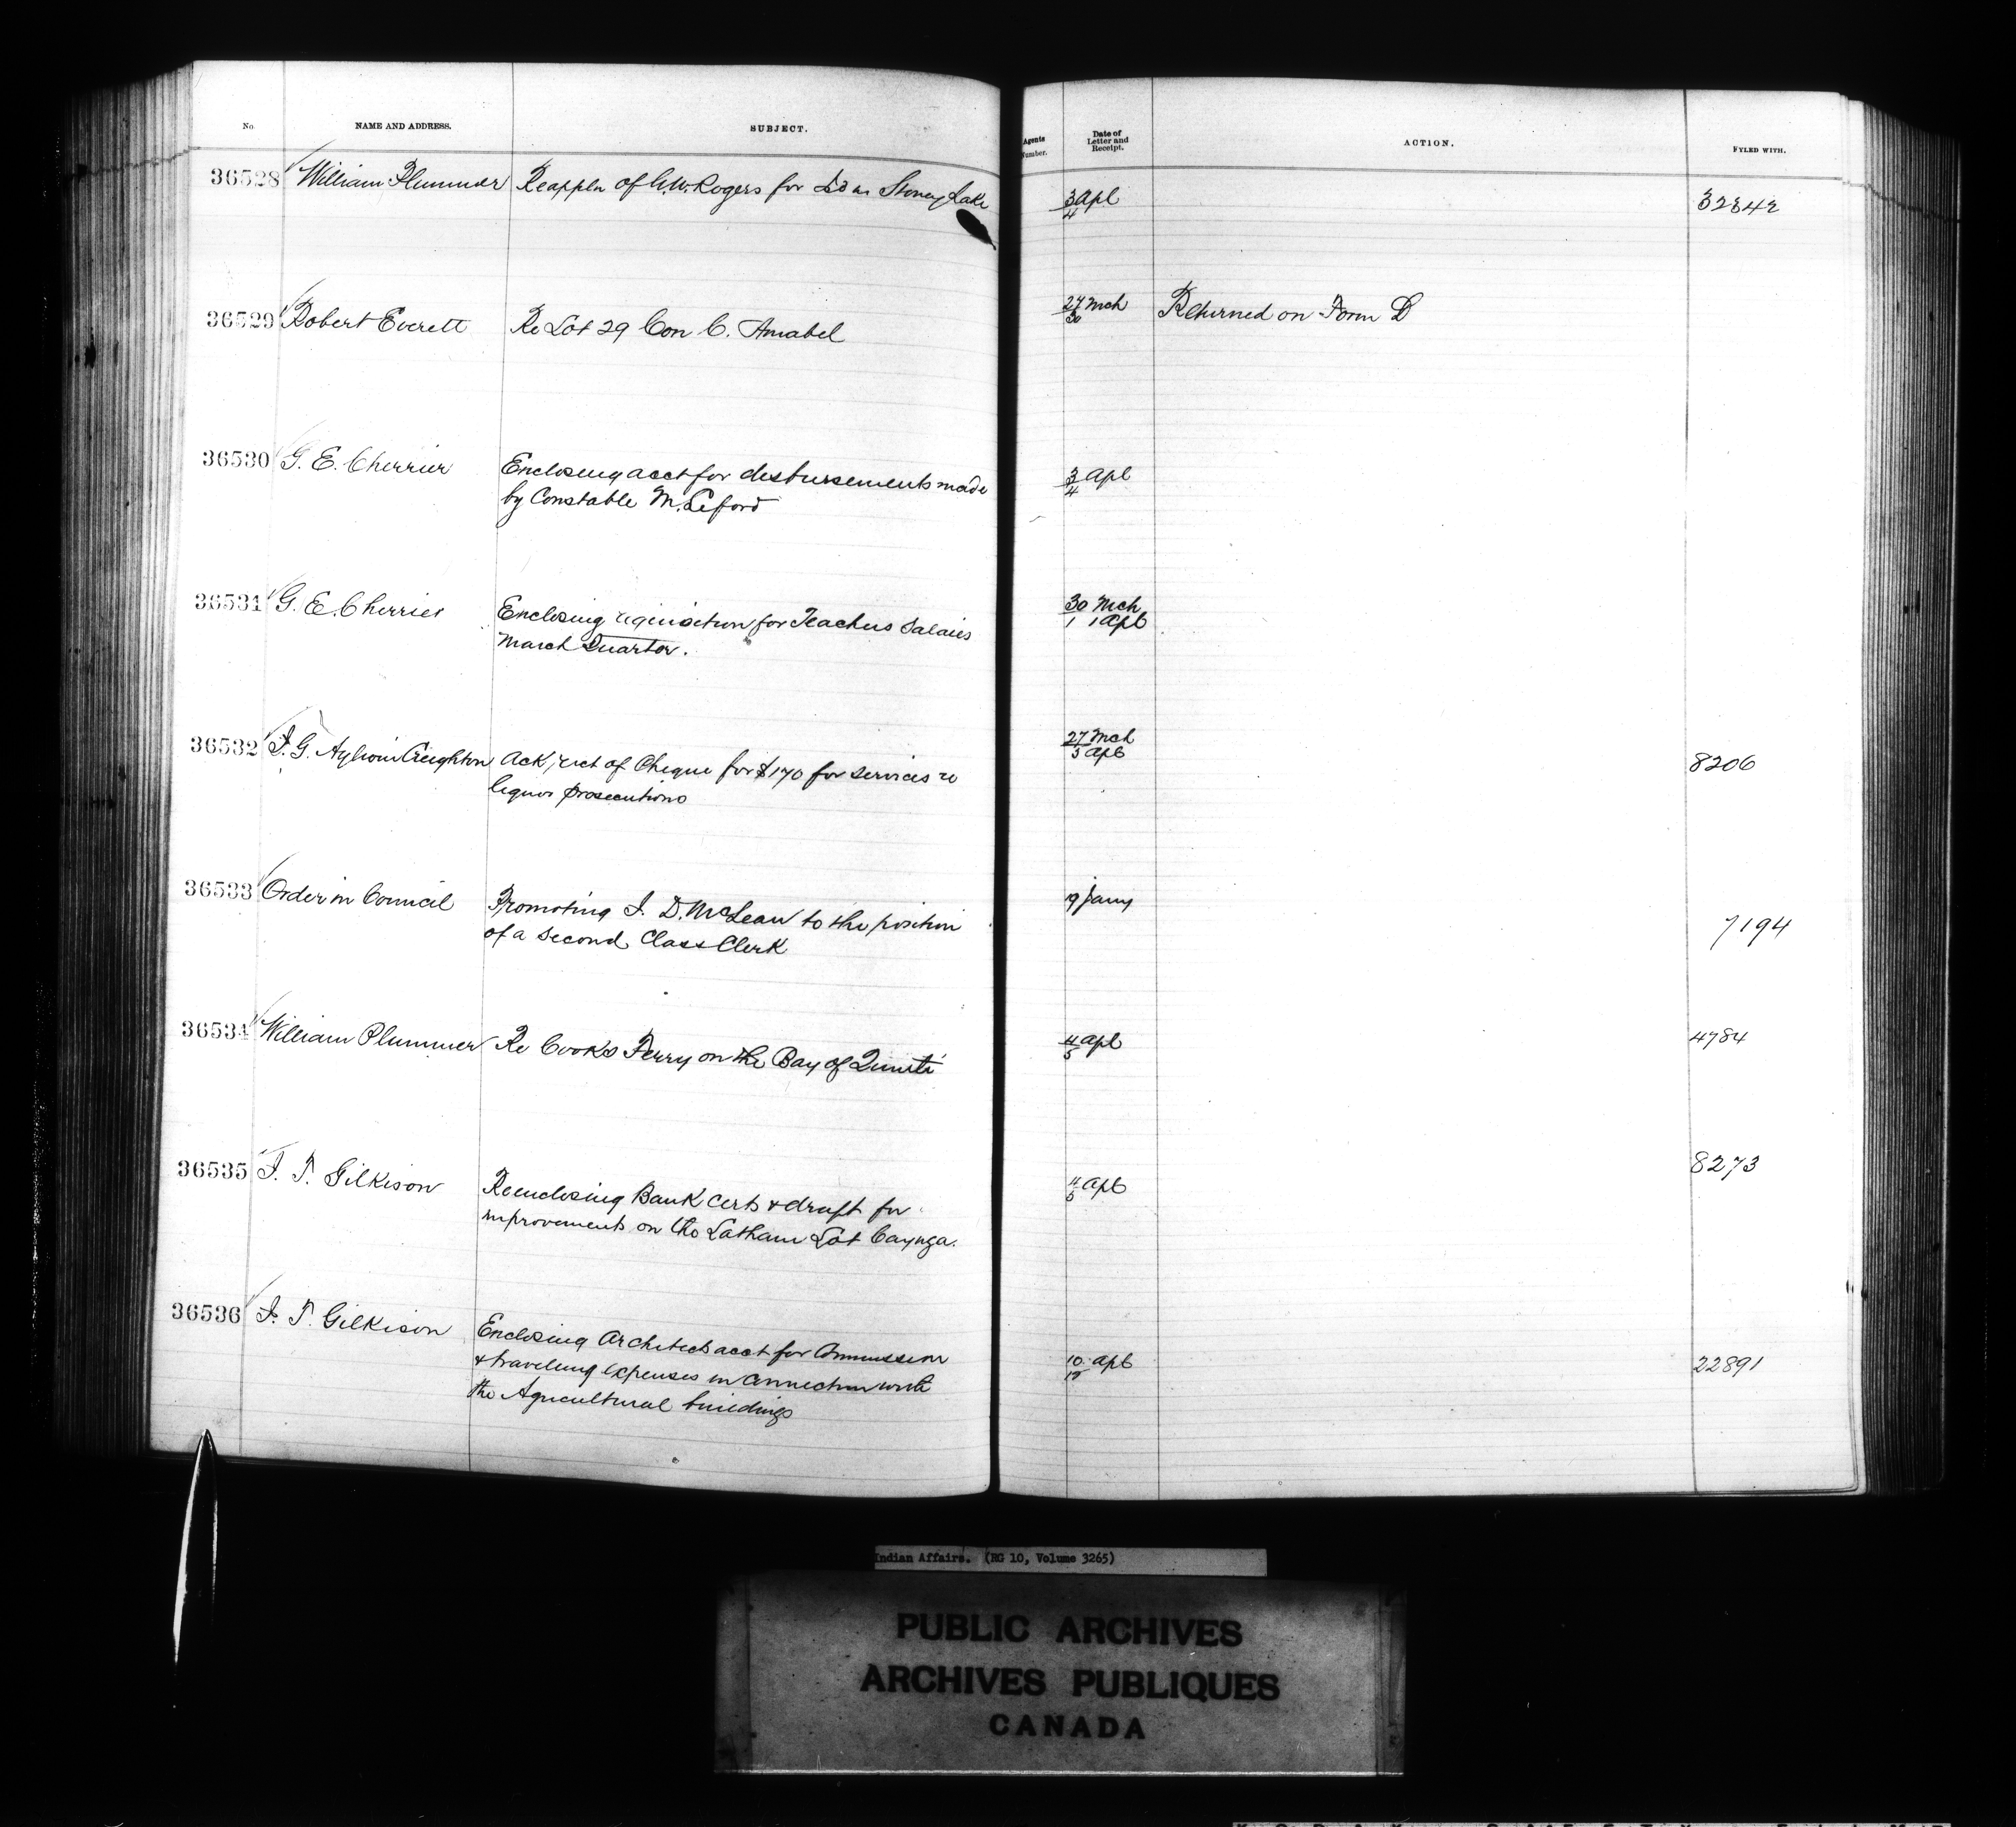 No. NAME AND ADDRESS. SUBJECT. Agents Number. Date of Letter and Receipt. ACTION. FYLED WITH.
36528 William Plummer Re appln of G.W. Rogers for Isd in Stoney Lake 3/4 Apl 32342
36529 Robert Everett Re Lot 29 Con C. Amabel 27/30 Mch Returned on Form D
36530 G. E. Cherrier Enclosing acct for disbursements made 3/4 Apl
by Constable M. Leford
36531 G. E. Cherrier Enclosing requisition for Teachers Salaries 30 Mch
March Quarter. 1 Apl
36532 J. G. Aylwin Creighton Ack, rect of Cheque for $170 for services re 27 Mch
liquor prosecutions 5 Apl 8206
36533 Order in Council Promoting J. D. McLean to the position 19 Jany
of a Second Class Clerk 7194
36534 William Plummer Re Cooks Ferry on the Bay of Quinté 4/5 Apl 4784
36535 J. T. Gilkison Re enclosing Bank certs & draft for 4/5 Apl 8273
improvements on the Latham Lot Cayuga.
36536 J. T. Gilkison Enclosing Architects acct for Commission
& traveling expenses in connection with 10/12 Apl 22891
the Agricultural buildings
Indian Affairs. (RG 10, Volume 3265)
PUBLIC ARCHIVES
ARCHIVES PUBLIQUES
CANADA